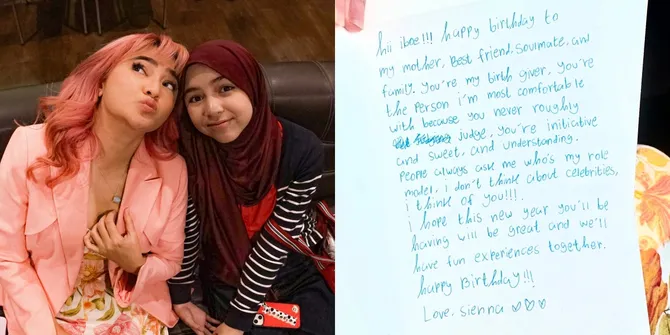 hii iboe!!! happy birthday to
my mother, Best friend, Soulmate, and
family. You're my birth giver, you're
the person i'm most comfortable
with because you never roughly
judge, you're initiative
and sweet, and understanding.
People always ask me who's my role
model, i don't think about celebrities,
i think of you!!!
i hope this new year you'll be
having will be great and we'll
have fun experiences together.
happy Birthday!!!
Love, sienna